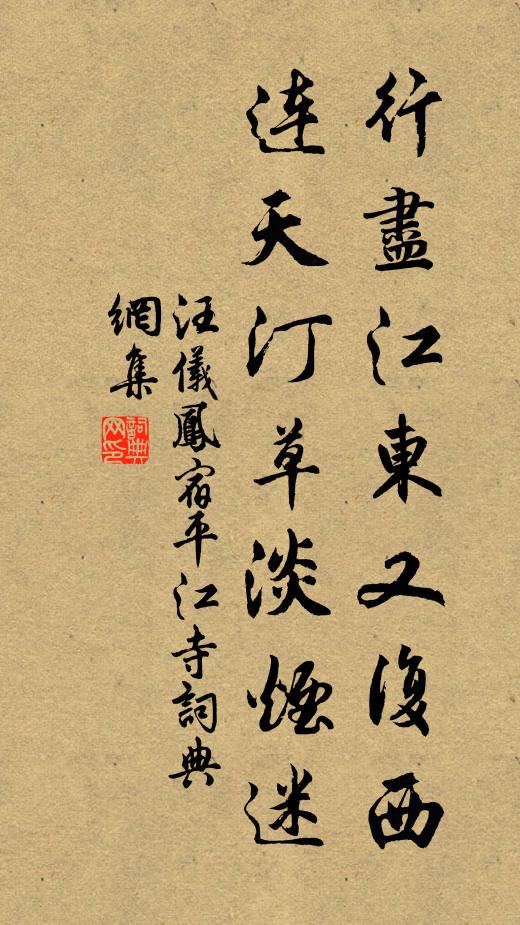 行盡江東又復西
連天汀草淡煙迷
汪儀鳳宿平江寺詞典
網集
詞典
网印